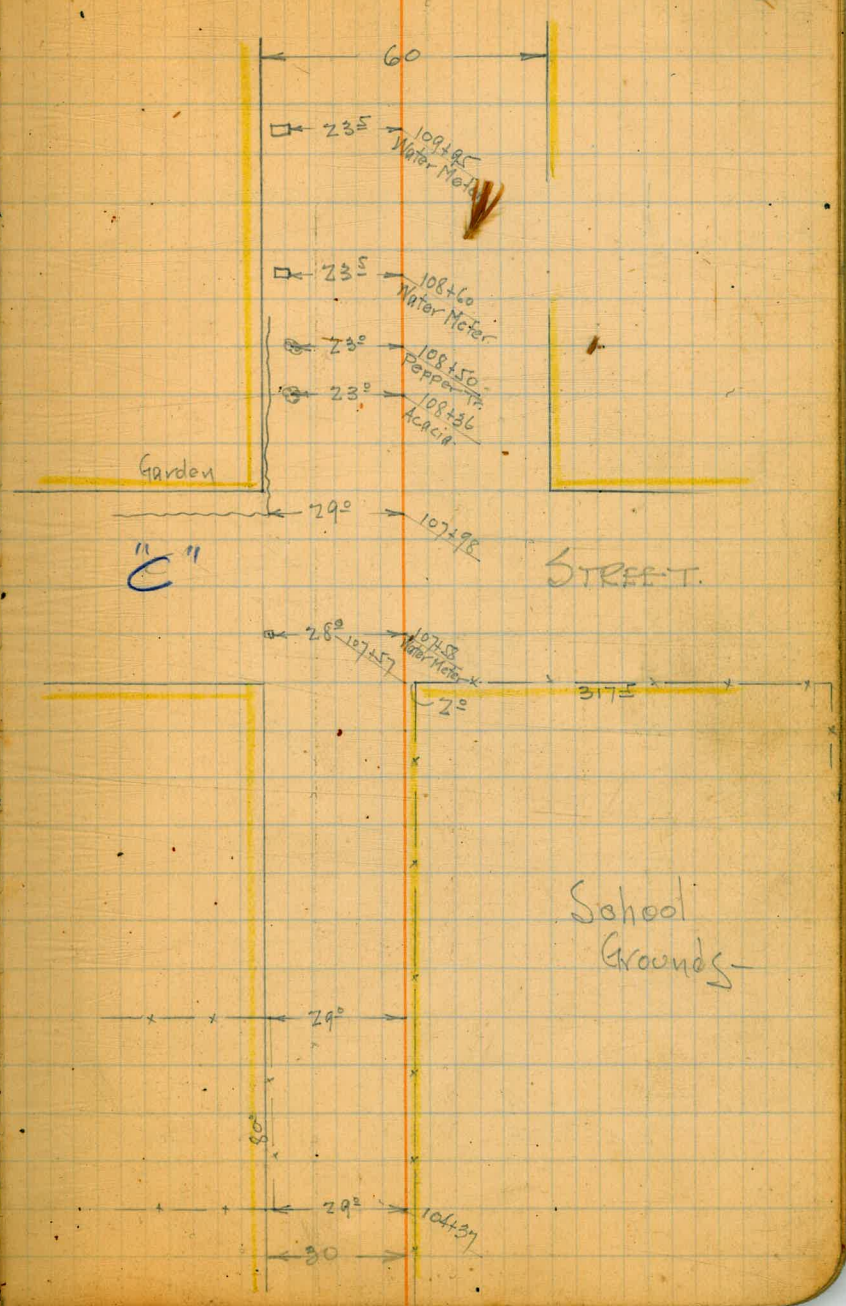 60
23⁵ 109+95
Water Meter
23⁵ 108+60
Water Meter
23⁰ 108+50
Pepper Tr.
23⁰ 108+36
Acacia
Garden
29⁰ 107+98
"C" STREET.
28⁰ 107+58
Water Meter
107+57
2⁰ 317⁵
School
Grounds
29⁰
80⁰
29² 104+37
30